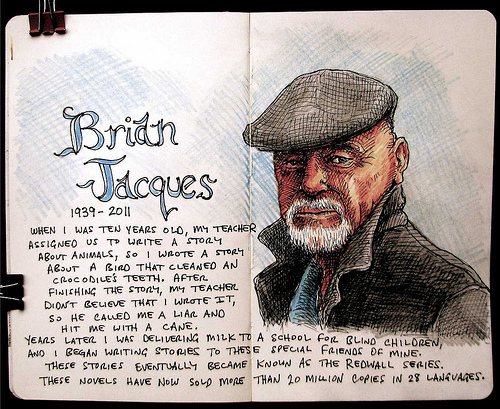 Brian
Jacques
1939-2011
WHEN I WAS TEN YEARS OLD, MY TEACHER
ASSIGNED US TO WRITE A STORY
ABOUT ANIMALS, SO I WROTE A STORY
ABOUT A BIRD THAT CLEANED AN
CROCODILE'S TEETH. AFTER
FINISHING THE STORY, MY TEACHER
DIDN'T BELIEVE THAT I WROTE IT,
SO HE CALLED ME A LIAR AND
HIT ME WITH A CANE.
YEARS LATER I WAS DELIVERING MILK TO A SCHOOL FOR BLIND CHILDREN,
AND I BEGAN WRITING STORIES TO THESE SPECIAL FRIENDS OF MINE.
THESE STORIES EVENTUALLY BECAME KNOWN AS THE REDWALL SERIES.
THESE NOVELS HAVE NOW SOLD MORE THAN 20 MILLION COPIES IN 28 LANGUAGES.